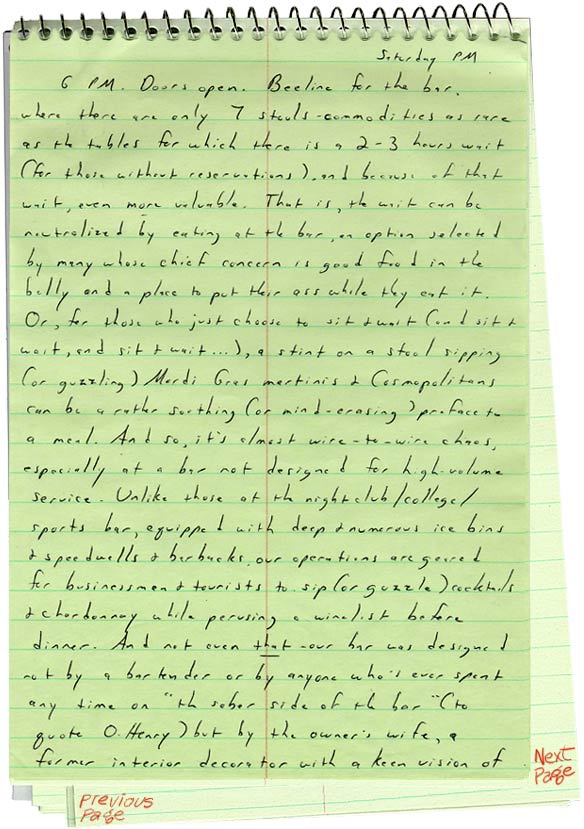 Saturday PM
6 PM. Doors open. Beeline for the bar,
where there are only 7 stools-commodities as rare
as the tables for which there is a 2-3 hours wait
(for those without reservations), and because of that
wait, even more valuable. That is, the wait can be
neutralized by eating at the bar, an option selected
by many whose chief concern is good food in the
belly and a place to put their ass while they eat it.
Or, for those who just choose to sit & wait (and sit &
wait, and sit & wait...), a stint on a stool sipping
(or guzzling) Mardi Gras martinis & Cosmopolitans
can be a rather soothing (or mind-erasing) preface to
a meal. And so, it's almost wire-to-wire chaos,
especially at a bar not designed for high-volume
service. Unlike those at the nightclub/college/
sports bar, equipped with deep & numerous ice bins
& speedwells & barbacks, our operations are geared
for businessmen & tourists to sip (or guzzle) cocktails
& chardonnay while perusing a winelist before
dinner. And not even that - our bar was designed
not by a bartender or by anyone who's ever spent
any time on "the sober side of the bar" (to
quote O. Henry) but by the owner's wife, a
former interior decorator with a keen vision of
Next
Page
Previous
Page